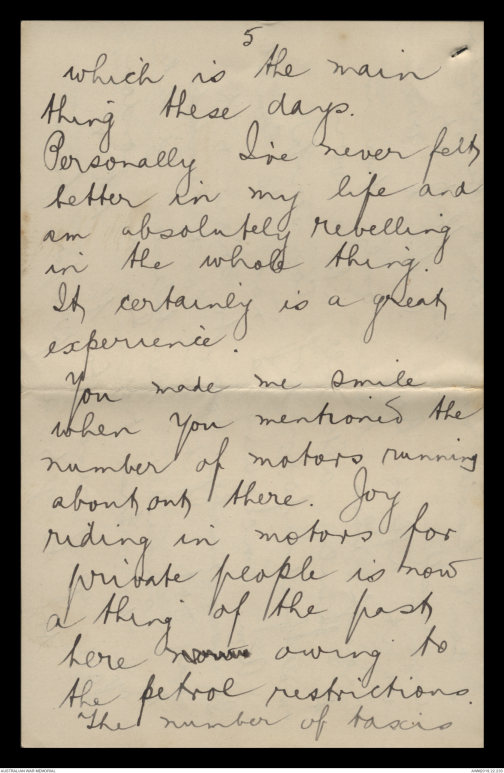 5
which is the main
thing these days.
Personally I've never felt
better in my life and
am absolutely revelling
in the whole thing.
It certainly is a great
experience.
You made me smile
when you mentioned the
number of motors running
about out there. Joy
riding in motors for
private people is now
a thing of the past
here owing to
the petrol restrictions.
The number of taxis
AUSTRALIAN WAR MEMORIAL